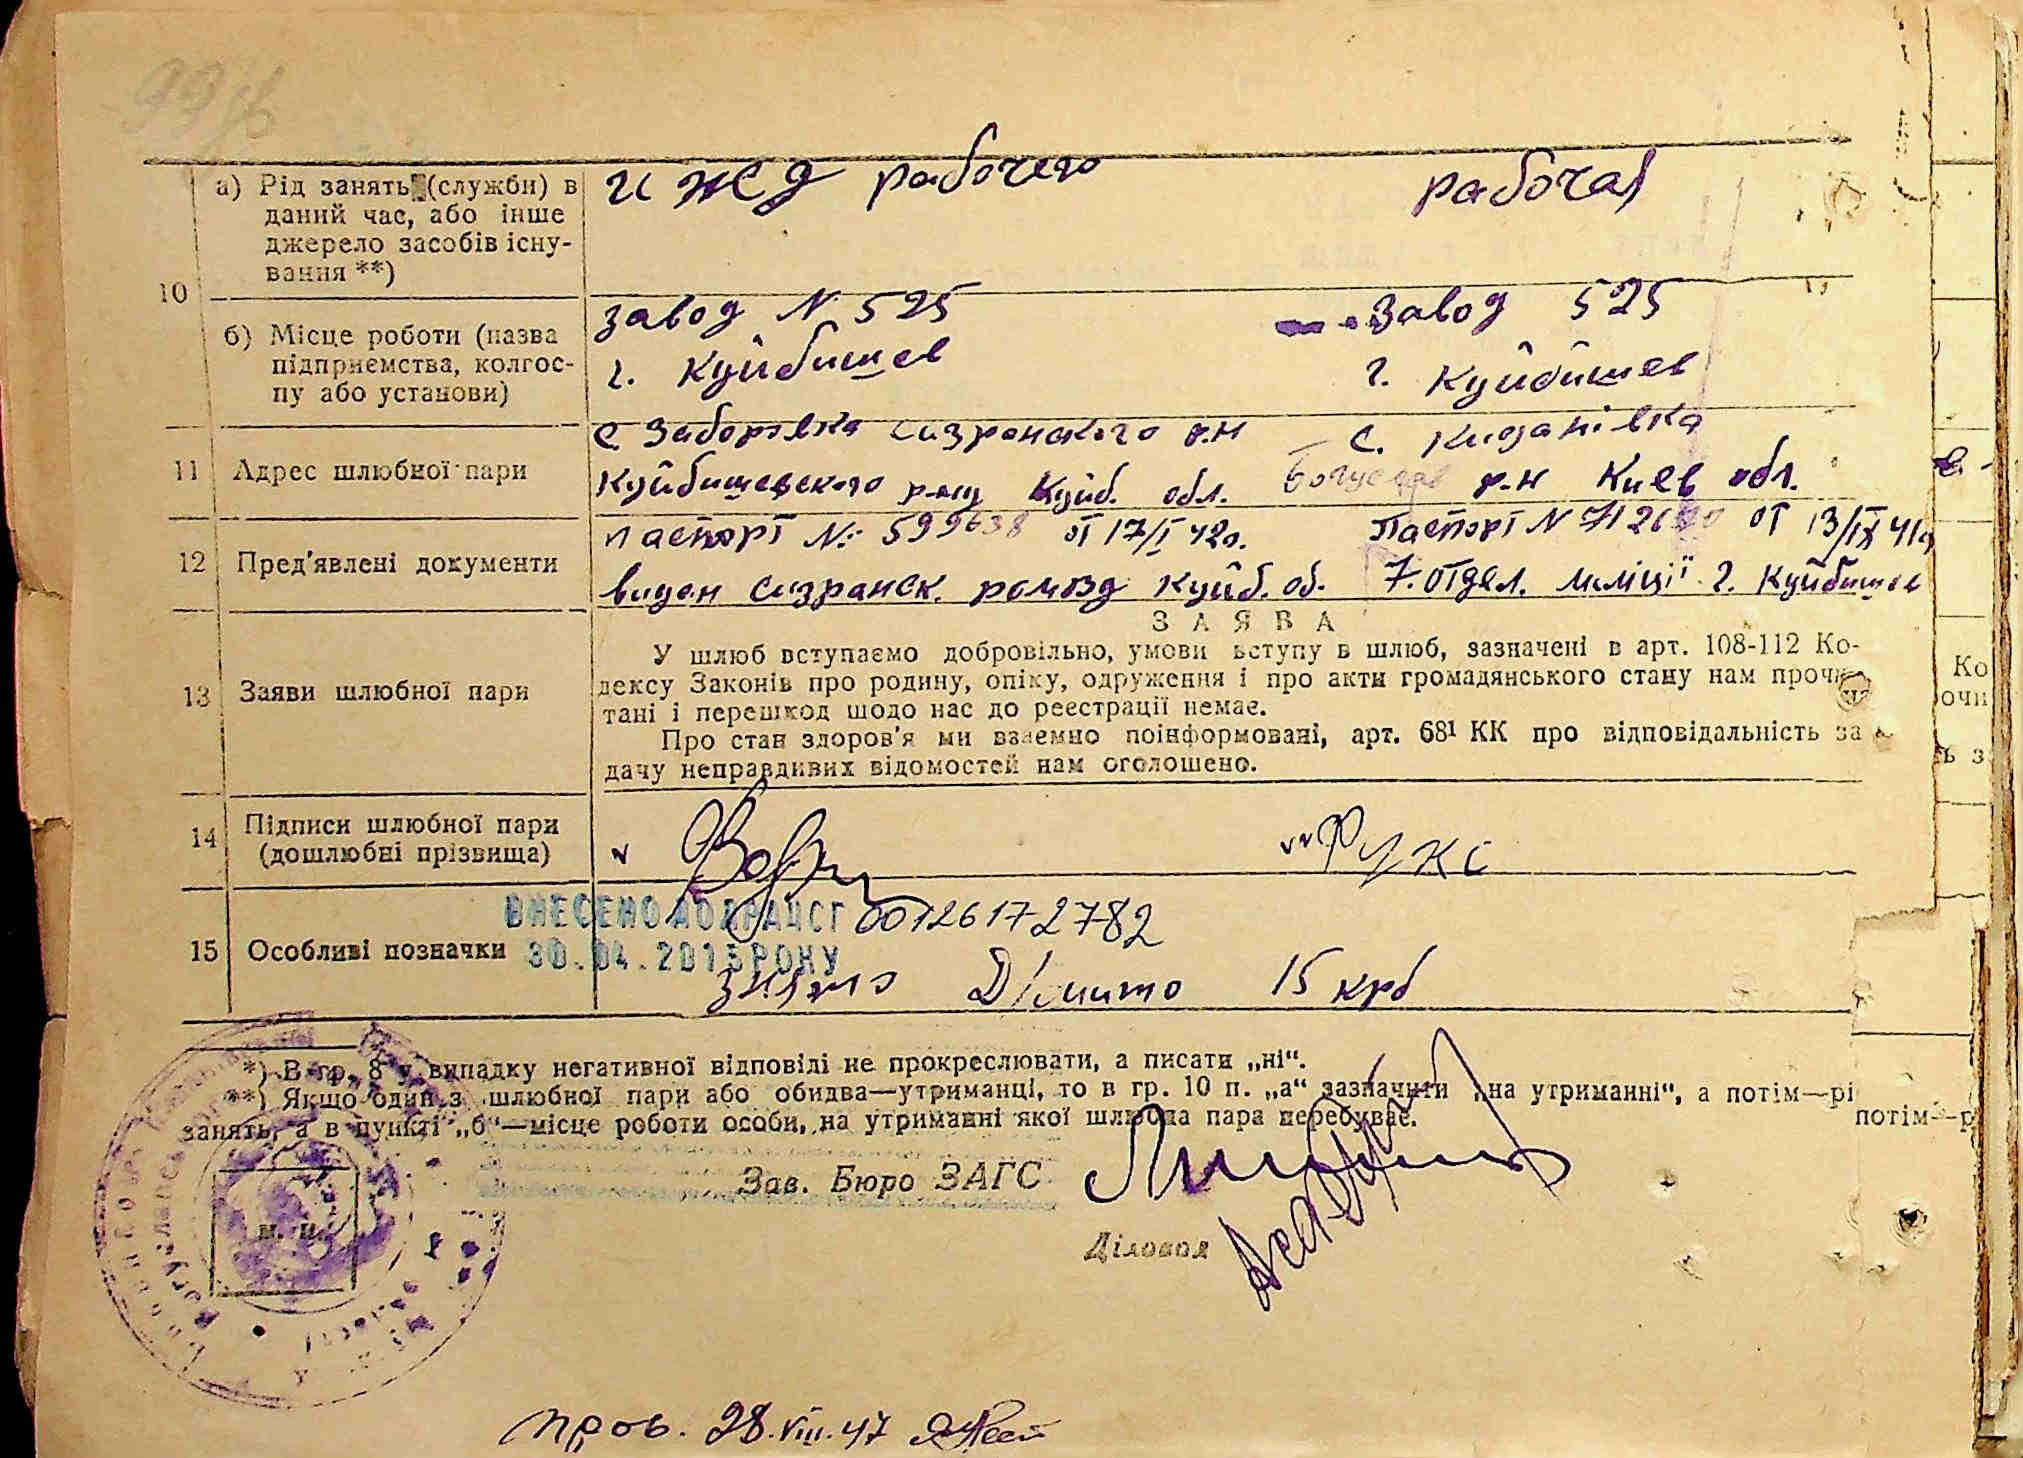 а) Рід занять (служби) в
даний час, або інше
джерело засобів існу-
вання **)
и жсд рабочего
рабочая
10
б) Місце роботи (назва
підприємства, колгос-
пу або установи)
завод N 525
г. Куйбишев
завод 525
г. Куйбишев
11 Адрес шлюбної пари
с. Заборовка Сизранского р.н
Куйбишевского р-ну Куйб. обл.
с. Киданівка
Богуслав р.н Киев обл.
12 Пред'явлені документи
паспорт №: 599638 от 17/I 42г.
виден Сизранск. ромвд Куйб. об.
Паспорт N от 13/IX 41г
7. отдел. міліції г. Куйбишев
13 Заяви шлюбної пари
ЗАЯВА
У шлюб вступаємо добровільно, умови вступу в шлюб, зазначені в арт. 108-112 Ко-
дексу Законів про родину, опіку, одруження і про акти громадянського стану нам прочи-
тані і перешкод щодо нас до реєстрації немає.
Про стан здоров'я ми взаємно поінформовані, арт. 68¹ КК про відповідальність за
дачу неправдивих відомостей нам оголошено.
14 Підписи шлюбної пари
(дошлюбні прізвища)
15 Особливі позначки
ВНЕСЕНО ДО ДРАЦСГ 0012617-2782
30.04.2015 РОКУ
Д/мито 15 крб
*) В гр. 8 у випадку негативної відповіді не прокреслювати, а писати „ні“.
**) Якщо один з шлюбної пари або обидва—утриманці, то в гр. 10 п. „а“ зазначити „на утриманні“, а потім—рі
занять, а в пункті „б“—місце роботи особи, на утриманні якої шлюбна пара перебуває.
потім—р
Зав. Бюро ЗАГС
м. п.
Діловод
пров. 28.VIII.47